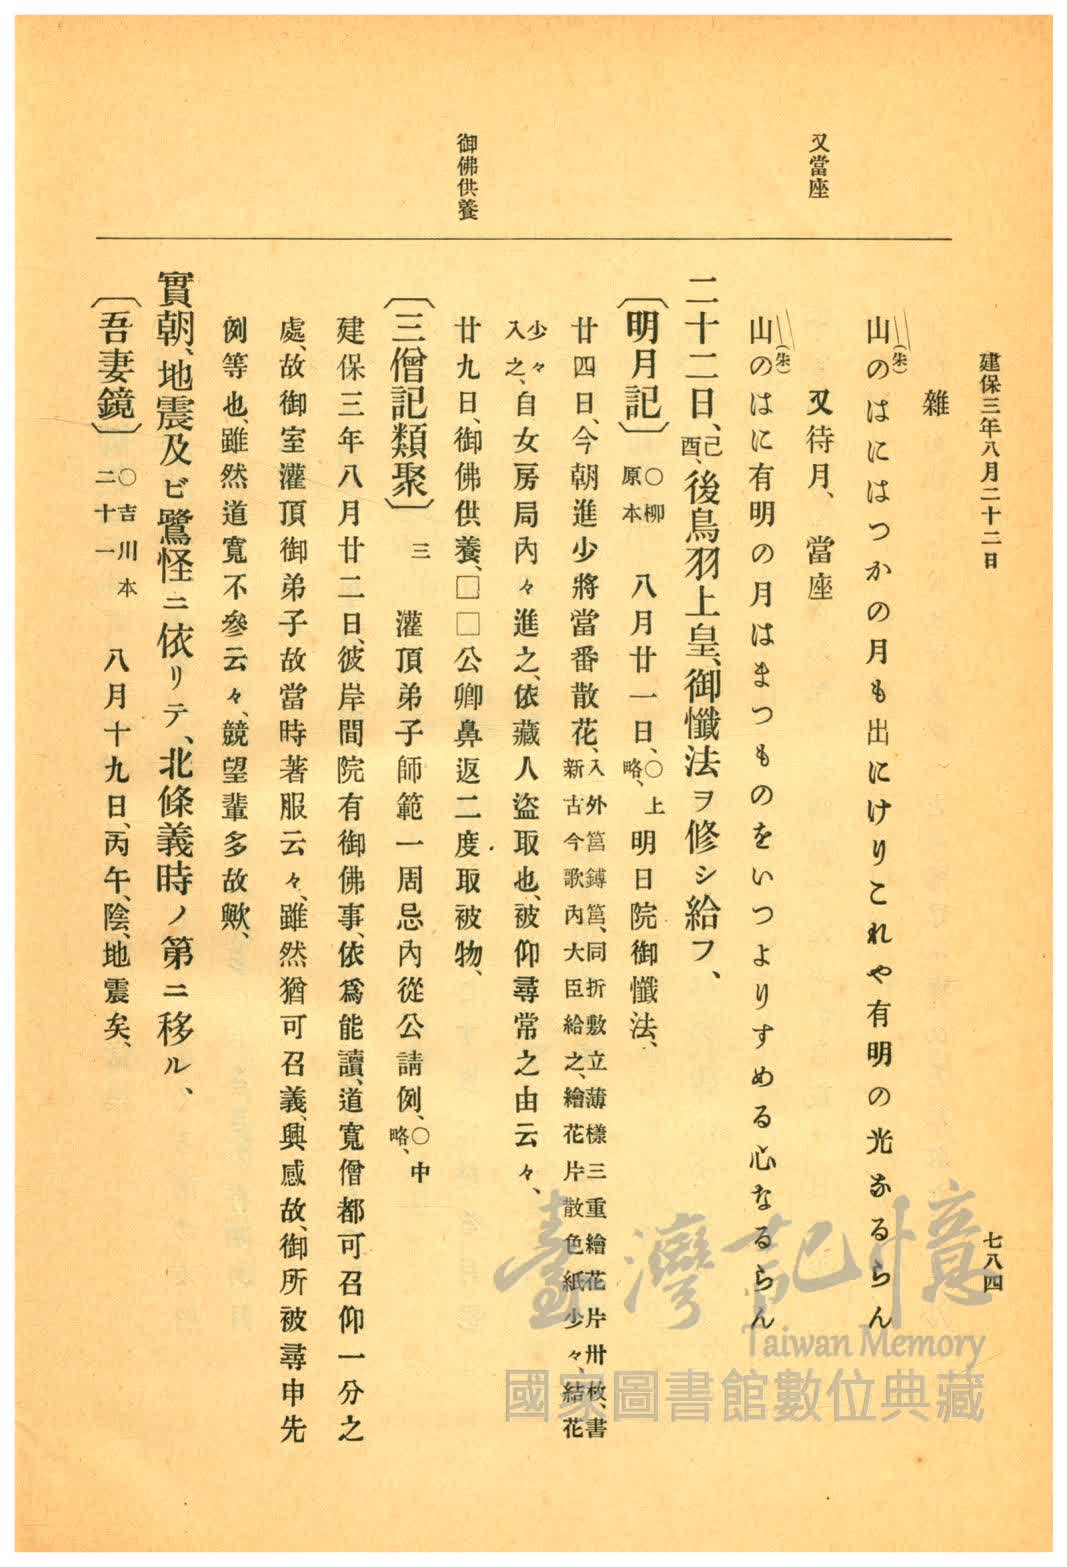 建保三年八月二十二日
七八四
又當座
御佛供養
雜
山のはにはつかの月も出にけりこれや有明の光なるらん
(朱)
又待月、當座
山のはに有明の月はまつものをいつよりすめる心なるらん
(朱)
二十二日、己酉、後鳥羽上皇、御懺法ヲ修シ給フ、
〔明月記〕 ○柳原本 八月廿一日、○上略、明日院御懺法、
廿四日、今朝進少將當番散花、入外筥鎛筥、同折敷立薄樣三重繪花片卅枚、書新古今歌內大臣給之、繪花片散色紙少々、結花
少々入之、自女房局內々進之、依藏人盜取也、被仰尋常之由云々、
廿九日、御佛供養、□□公卿鼻返二度取被物、
〔三僧記類聚〕 三 灌頂弟子師範一周忌內從公請例、○中略、
建保三年八月廿二日、彼岸間院有御佛事、依爲能讀、道寬僧都可召仰一分之
處、故御室灌頂御弟子故當時著服云々、雖然猶可召義、興感故、御所被尋申先
例等也、雖然道寬不參云々、競望輩多故歟、
實朝、地震及ビ鷺怪ニ依リテ、北條義時ノ第ニ移ル、
〔吾妻鏡〕 ○吉川本二十一 八月十九日、丙午、陰、地震矣、
臺灣記憶
Taiwan Memory
國家圖書館數位典藏